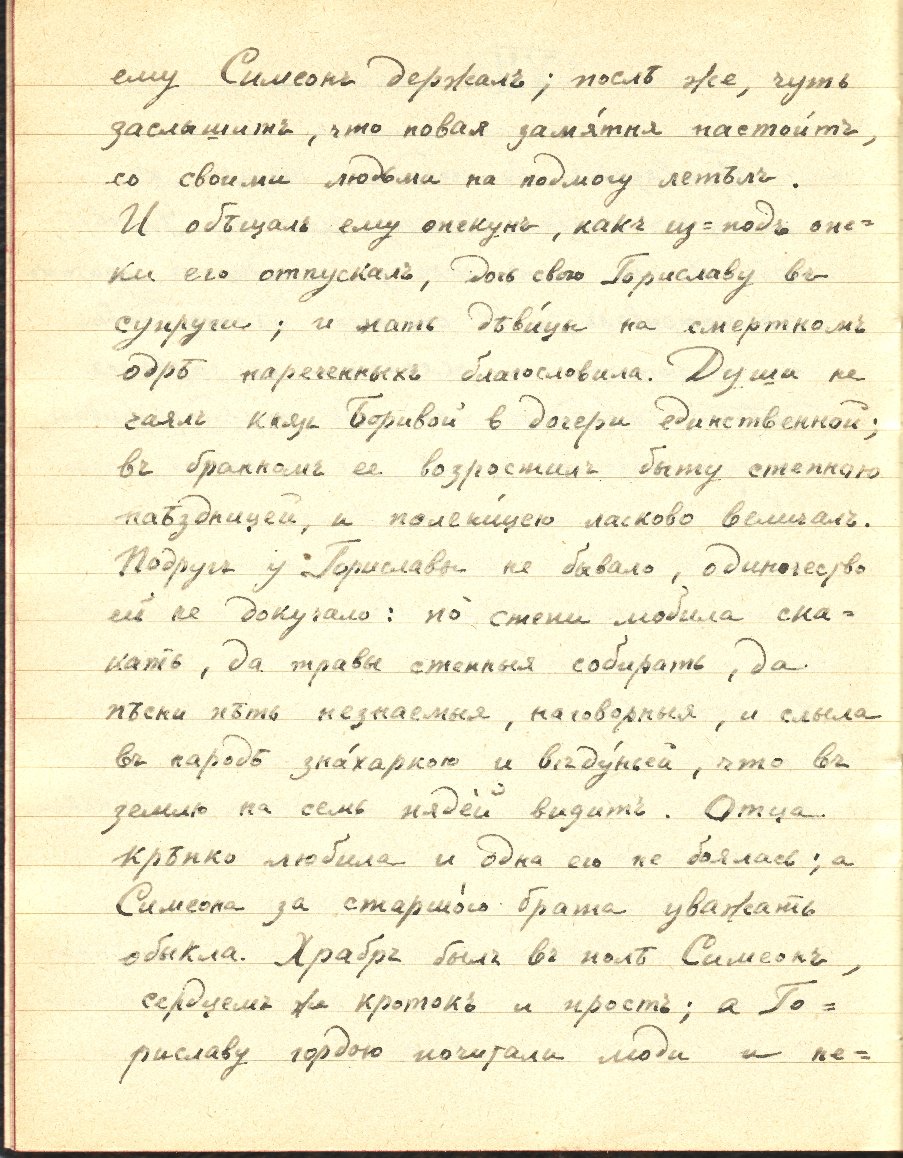 ему Симеонъ держалъ; послѣ же, чуть
заслышитъ, что новая замя́тня настои́тъ,
со своими людьми на подмогу летѣлъ.
И обѣщалъ ему опекунъ, какъ из=подъ опе=
ки его отпускалъ, дочь свою Гориславу въ
супруги; и мать дѣви́цы на смертномъ
одрѣ нареченныхъ благословила. Души не
чаялъ князь Боривой в дочери единственной;
въ бранномъ ее возростилъ быту степною
наѣздницей, и полени́цею ласково величалъ.
Подругъ у Гориславы не бывало, одиночество
ей не докучало: по́ степи любила ска=
кать, да травы степныя собирать, да
пѣсни пѣть незнаемыя, наговорныя, и слыла
въ народѣ зна́харкою и вѣду́ньей, что въ
землю на семь пяде́й видитъ. Отца
крѣпко любила и одна его не боялась; а
Симеона за старшо́го брата уважать
обыкла. Храбръ былъ въ полѣ Симеонъ,
сердцемъ же кротокъ и простъ; а Го=
риславу гордою почитали люди и не=